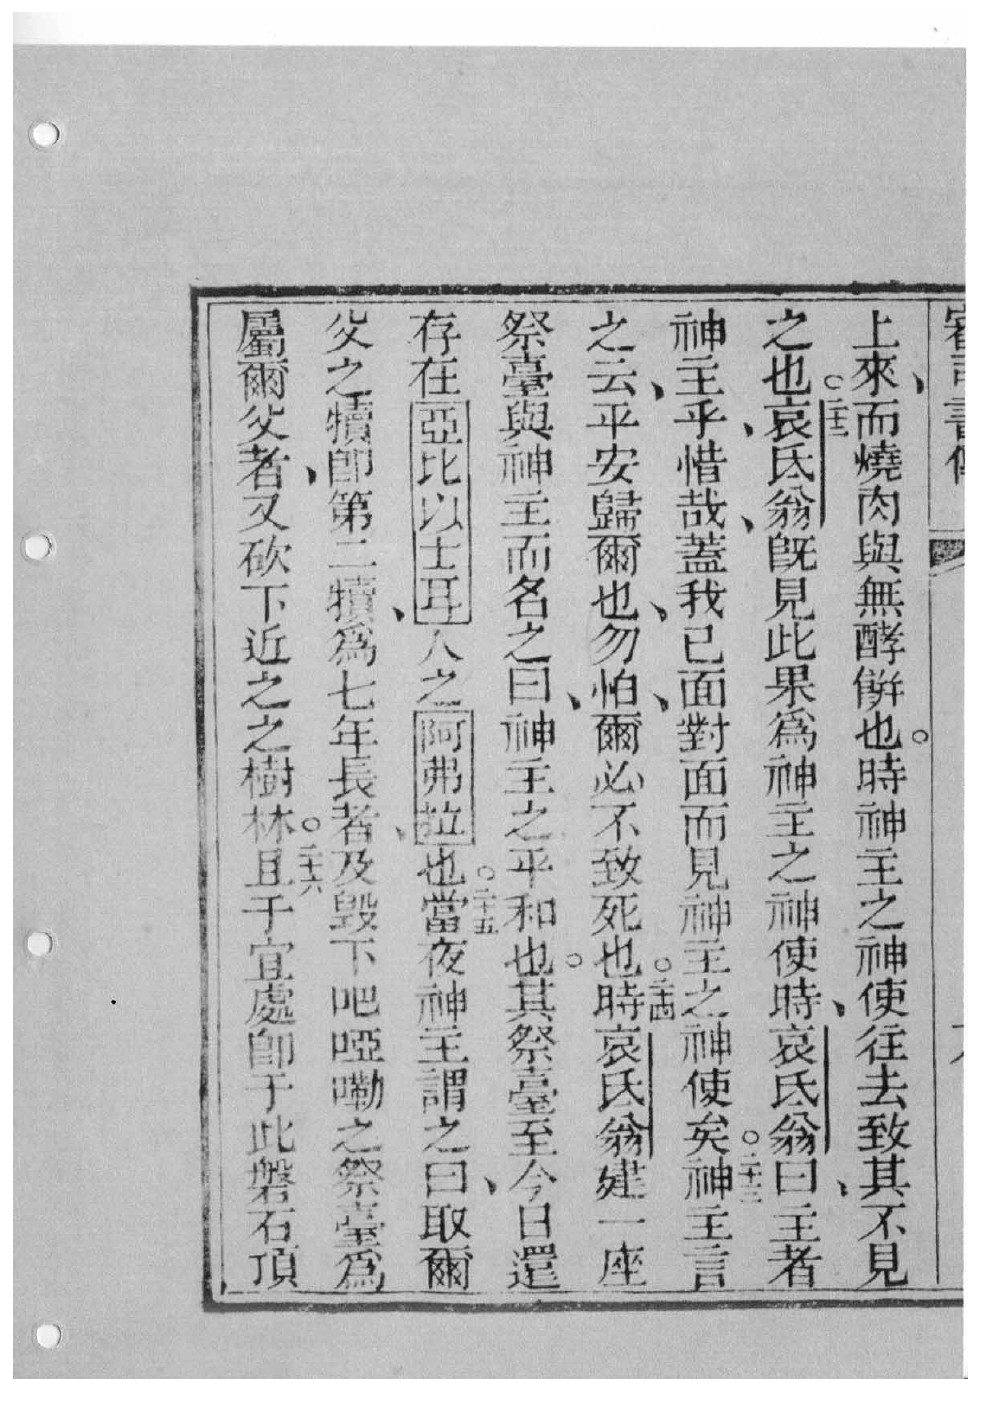 審司書傳
上來、而燒肉與無酵餅也。時神主之神使往去致其不見
之也○二十二哀氐翁旣見此果爲神主之神使時、哀氐翁曰、主者
神主乎、惜哉、蓋我已面對面而見神主之神使矣○二十三神主言
之云、平安歸爾也、勿怕、爾必不致死也○二十四時哀氐翁建一座
祭臺與神主而名之曰、神主之平和也。其祭臺至今日還
存在亞比以士耳人之阿弗拉也○二十五當夜神主謂之曰、取爾
父之犢、卽第二犢、爲七年長者、及毀下吧啞嘞之祭臺爲
屬爾父者、又砍下近之之樹林○二十六且于宜處卽于此磐石頂